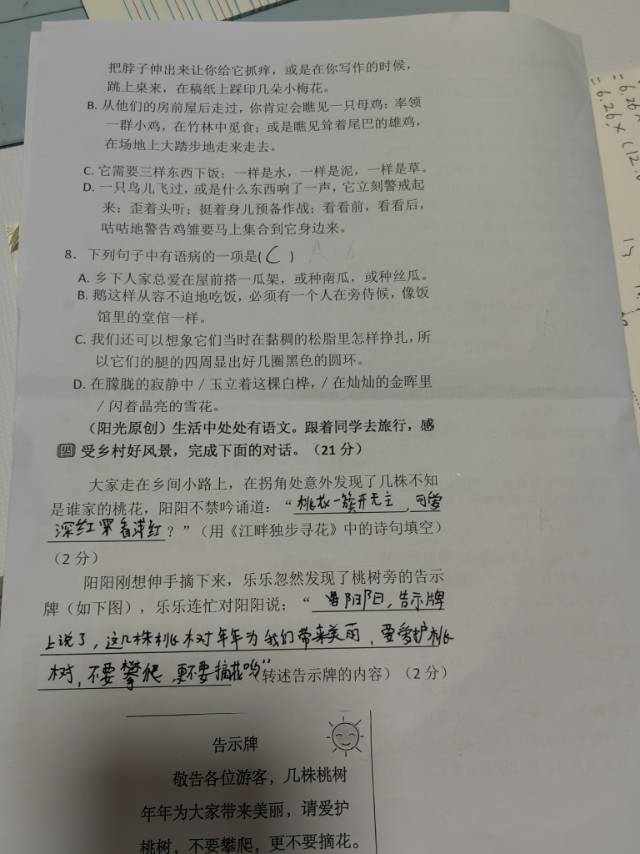 把脖子伸出来让你给它抓痒，或是在你写作的时候，
跳上桌来，在稿纸上踩印几朵小梅花。
B. 从他们的房前屋后走过，你肯定会瞧见一只母鸡：率领
一群小鸡，在竹林中觅食；或是瞧见耸着尾巴的雄鸡，
在场地上大踏步地走来走去。
C. 它需要三样东西下饭：一样是水，一样是泥，一样是草。
D. 一只鸟儿飞过，或是什么东西响了一声，它立刻警戒起
来：歪着头听；挺着身儿预备作战；看看前，看看后，
咕咕地警告鸡雏要马上集合到它身边来。
8. 下列句子中有语病的一项是( C )
A. 乡下人家总爱在屋前搭一瓜架，或种南瓜，或种丝瓜。
B. 鹅这样从容不迫地吃饭，必须有一个人在旁侍候，像饭
馆里的堂倌一样。
C. 我们还可以想象它们当时在黏稠的松脂里怎样挣扎，所
以它们的腿的四周显出好几圈黑色的圆环。
D. 在朦胧的寂静中 / 玉立着这棵白桦，/ 在灿灿的金晖里
/ 闪着晶亮的雪花。
（阳光原创）生活中处处有语文。跟着同学去旅行，感
四 受乡村好风景，完成下面的对话。（21 分）
大家走在乡间小路上，在拐角处意外发现了几株不知
是谁家的桃花，阳阳不禁吟诵道：“桃花一簇开无主，可爱
深红 浅红？”（用《江畔独步寻花》中的诗句填空）
（2 分）
阳阳刚想伸手摘下来，乐乐忽然发现了桃树旁的告示
牌（如下图），乐乐连忙对阳阳说：“阳阳，告示牌
上说了，这几株桃树年年为我们带来美丽，要爱护桃
树，不要攀爬，更不要摘花哟”转述告示牌的内容）（2 分）
告示牌
敬告各位游客，几株桃树
年年为大家带来美丽，请爱护
桃树，不要攀爬，更不要摘花。